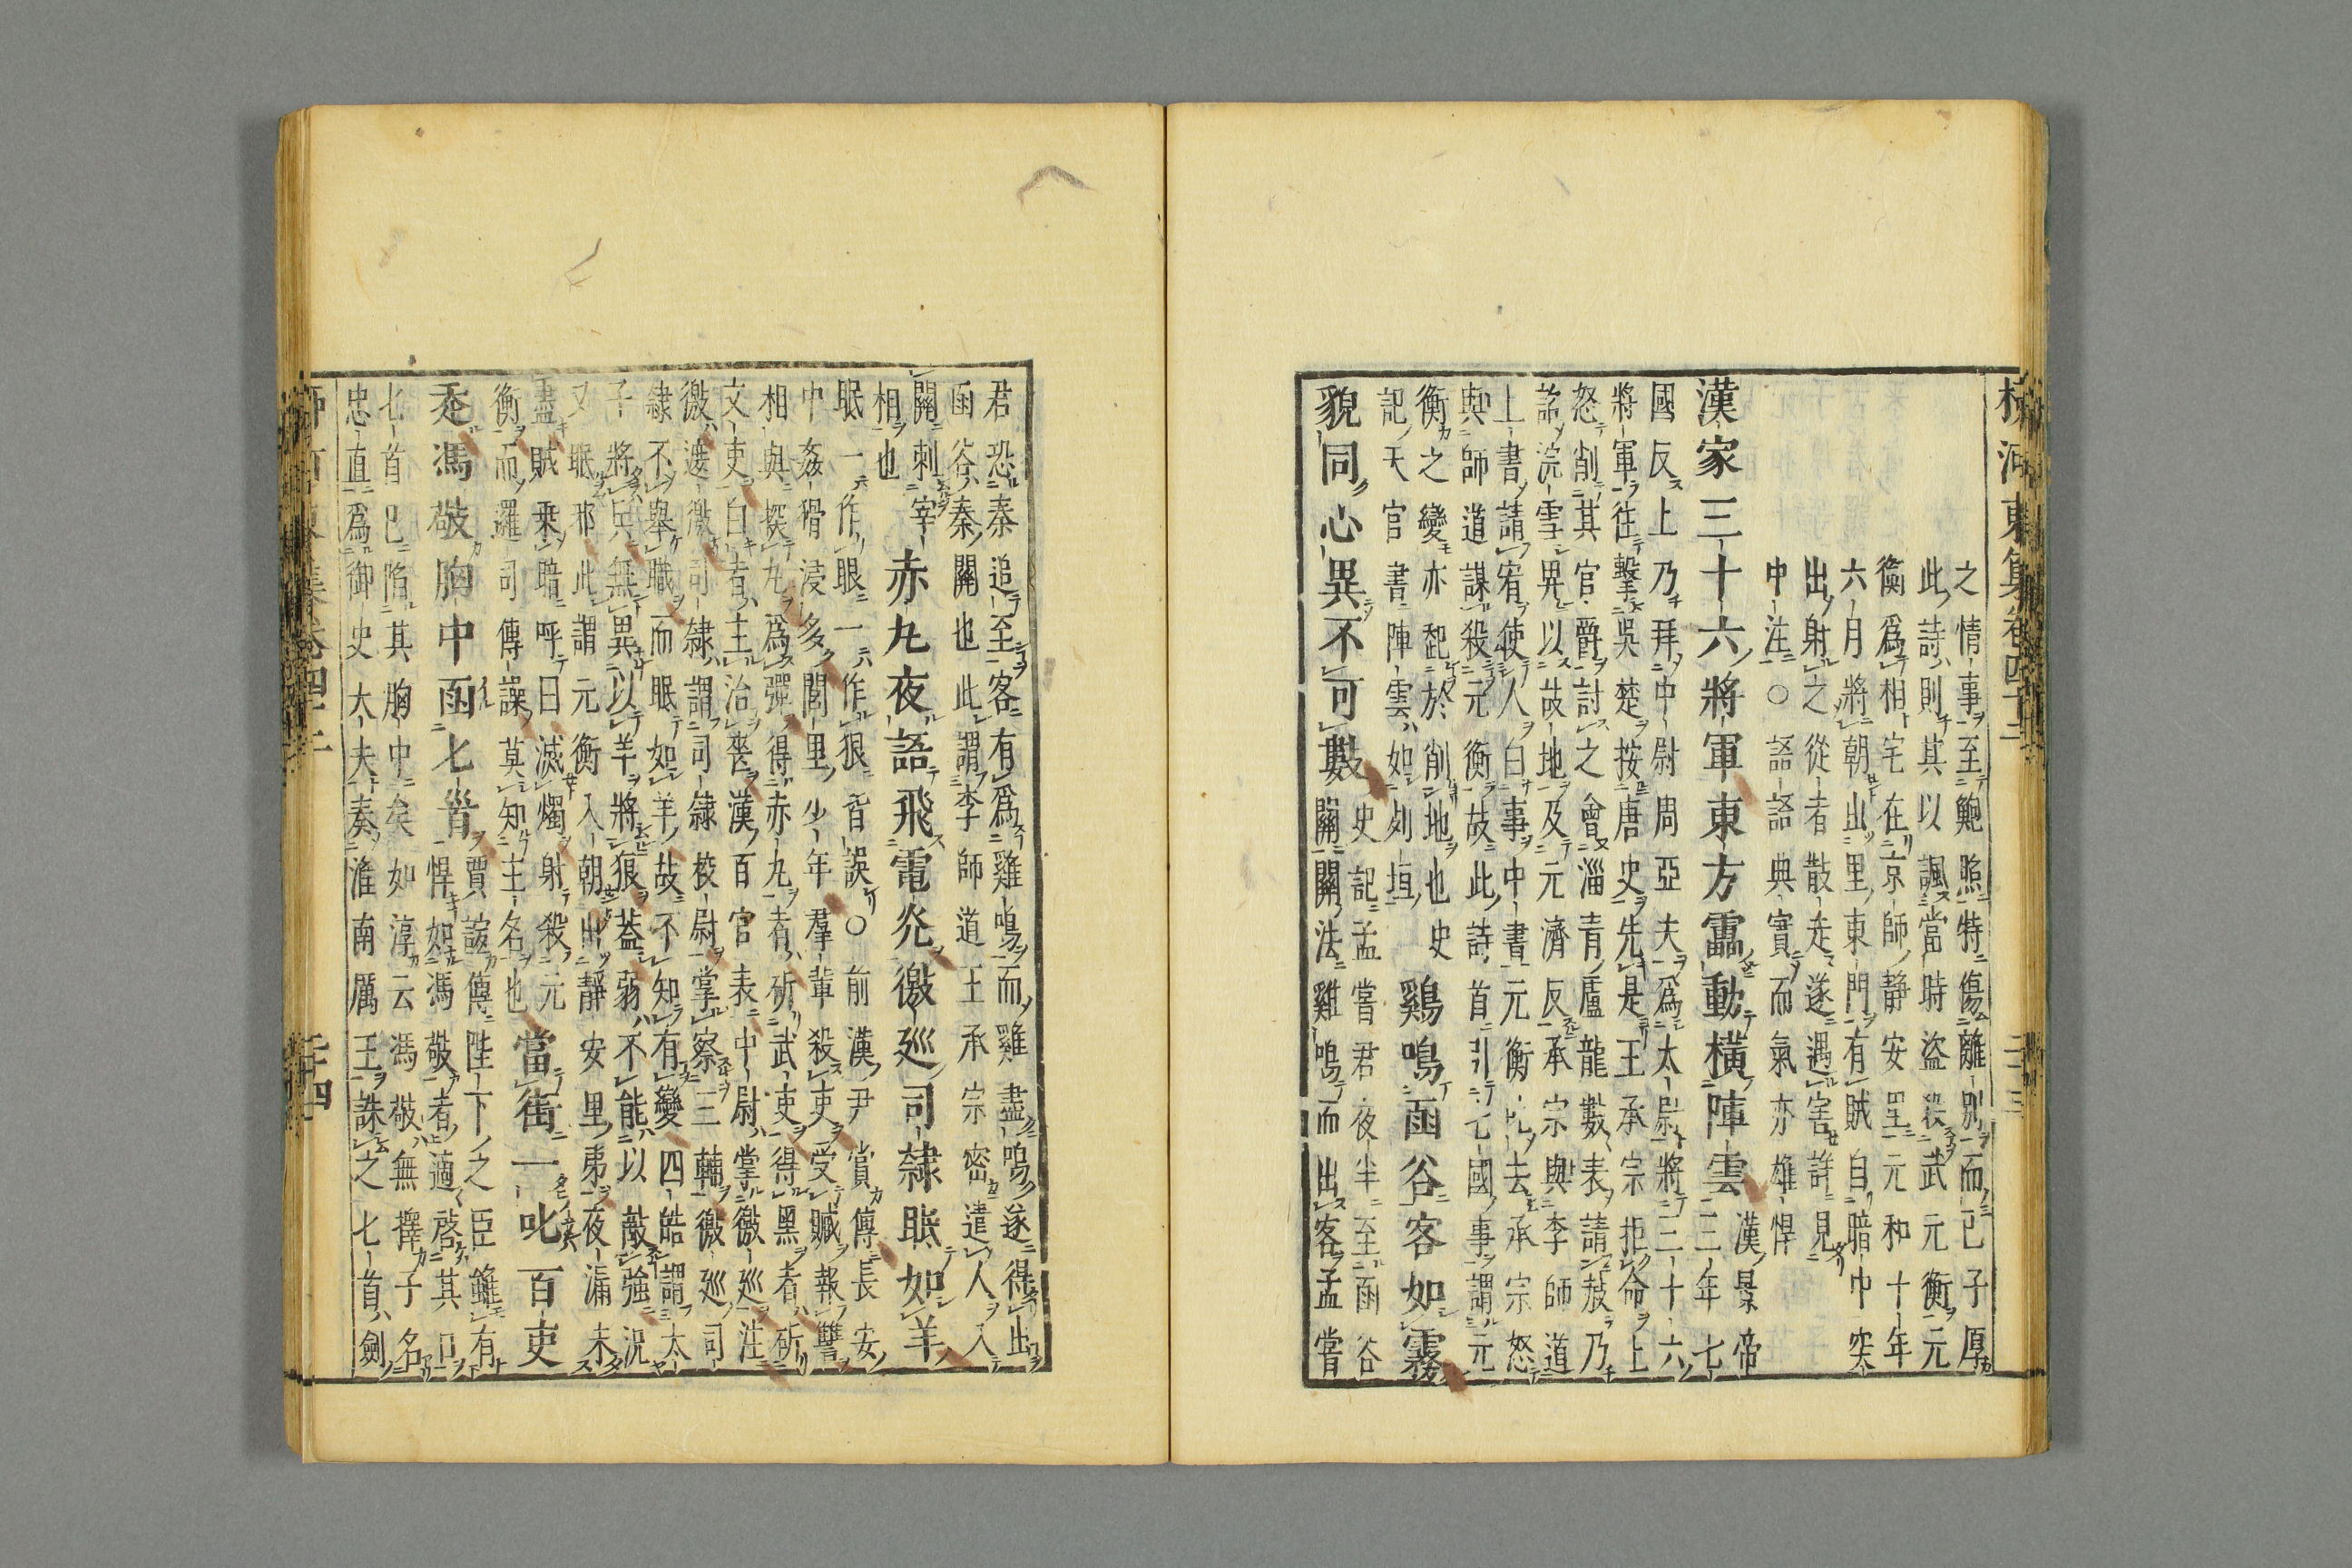 柳河東集卷四十二 二十三
之情事至鮑照特傷離別而已子厚
此詩則其以諷當時盜殺武元衡元
衡爲相宅在京師靜安里元和十年
六月將朝出里東門有賊自暗中突
出射之從者散走遂遇害詳見
中注○語語典實而氣亦雄悍
漢家三十六將軍東方靁動橫陣雲 漢景帝三年七
國反上乃拜中尉周亞夫爲太尉將三十六
將軍往擊吳楚按唐史先是王承宗拒命上
怒削其官爵討之會淄青盧龍數表請赦乃
詔浣雪畀以故地及元濟反承宗與李師道
上書請宥使人白事中書元衡叱去承宗怒
與師道謀殺元衡故此詩首引七國事謂元
衡之變亦起於削地也史
記天官書陣雲如列垣 鷄鳴函谷客如霧
史記孟嘗君夜半至函谷
貌同心異不可數 關關法雞鳴而出客孟嘗
君恐秦追至客有爲雞鳴而雞盡鳴遂得出
函谷秦關也此謂李師道王承宗密遣人入
關刺宰相也 赤丸夜語飛電光徼巡司隸眠如羊
眠一作眼一作狠皆誤○前漢尹賞傳長安
中姦猾浸多閭里少年羣輩殺吏受賕報讐
相與探丸爲彈得赤丸者斫武吏得黑者斫
文吏白者主治喪漢百官表中尉掌徼巡注
徼遮徼司隸謂司隸校尉掌察三輔徼巡司
隸不舉職而眠如羊故不知有變四皓謂太
子將兵無異以羊將狼蓋弱不能以敵強況
又眠耶此謂元衡入朝出靜安里第夜漏未
盡賊乘暗呼曰滅燭射殺元
衡而邏司傳譟莫知主名也 當街一叱百吏
走馮敬胸中函匕首 賈誼傳陛下之臣雖有
悍如馮敬者適啓其口
匕首已陷其胸中矣如淳云馮敬無擇子名
忠直爲御史大夫奏淮南厲王誅之匕首劍
卷四十二 二十四